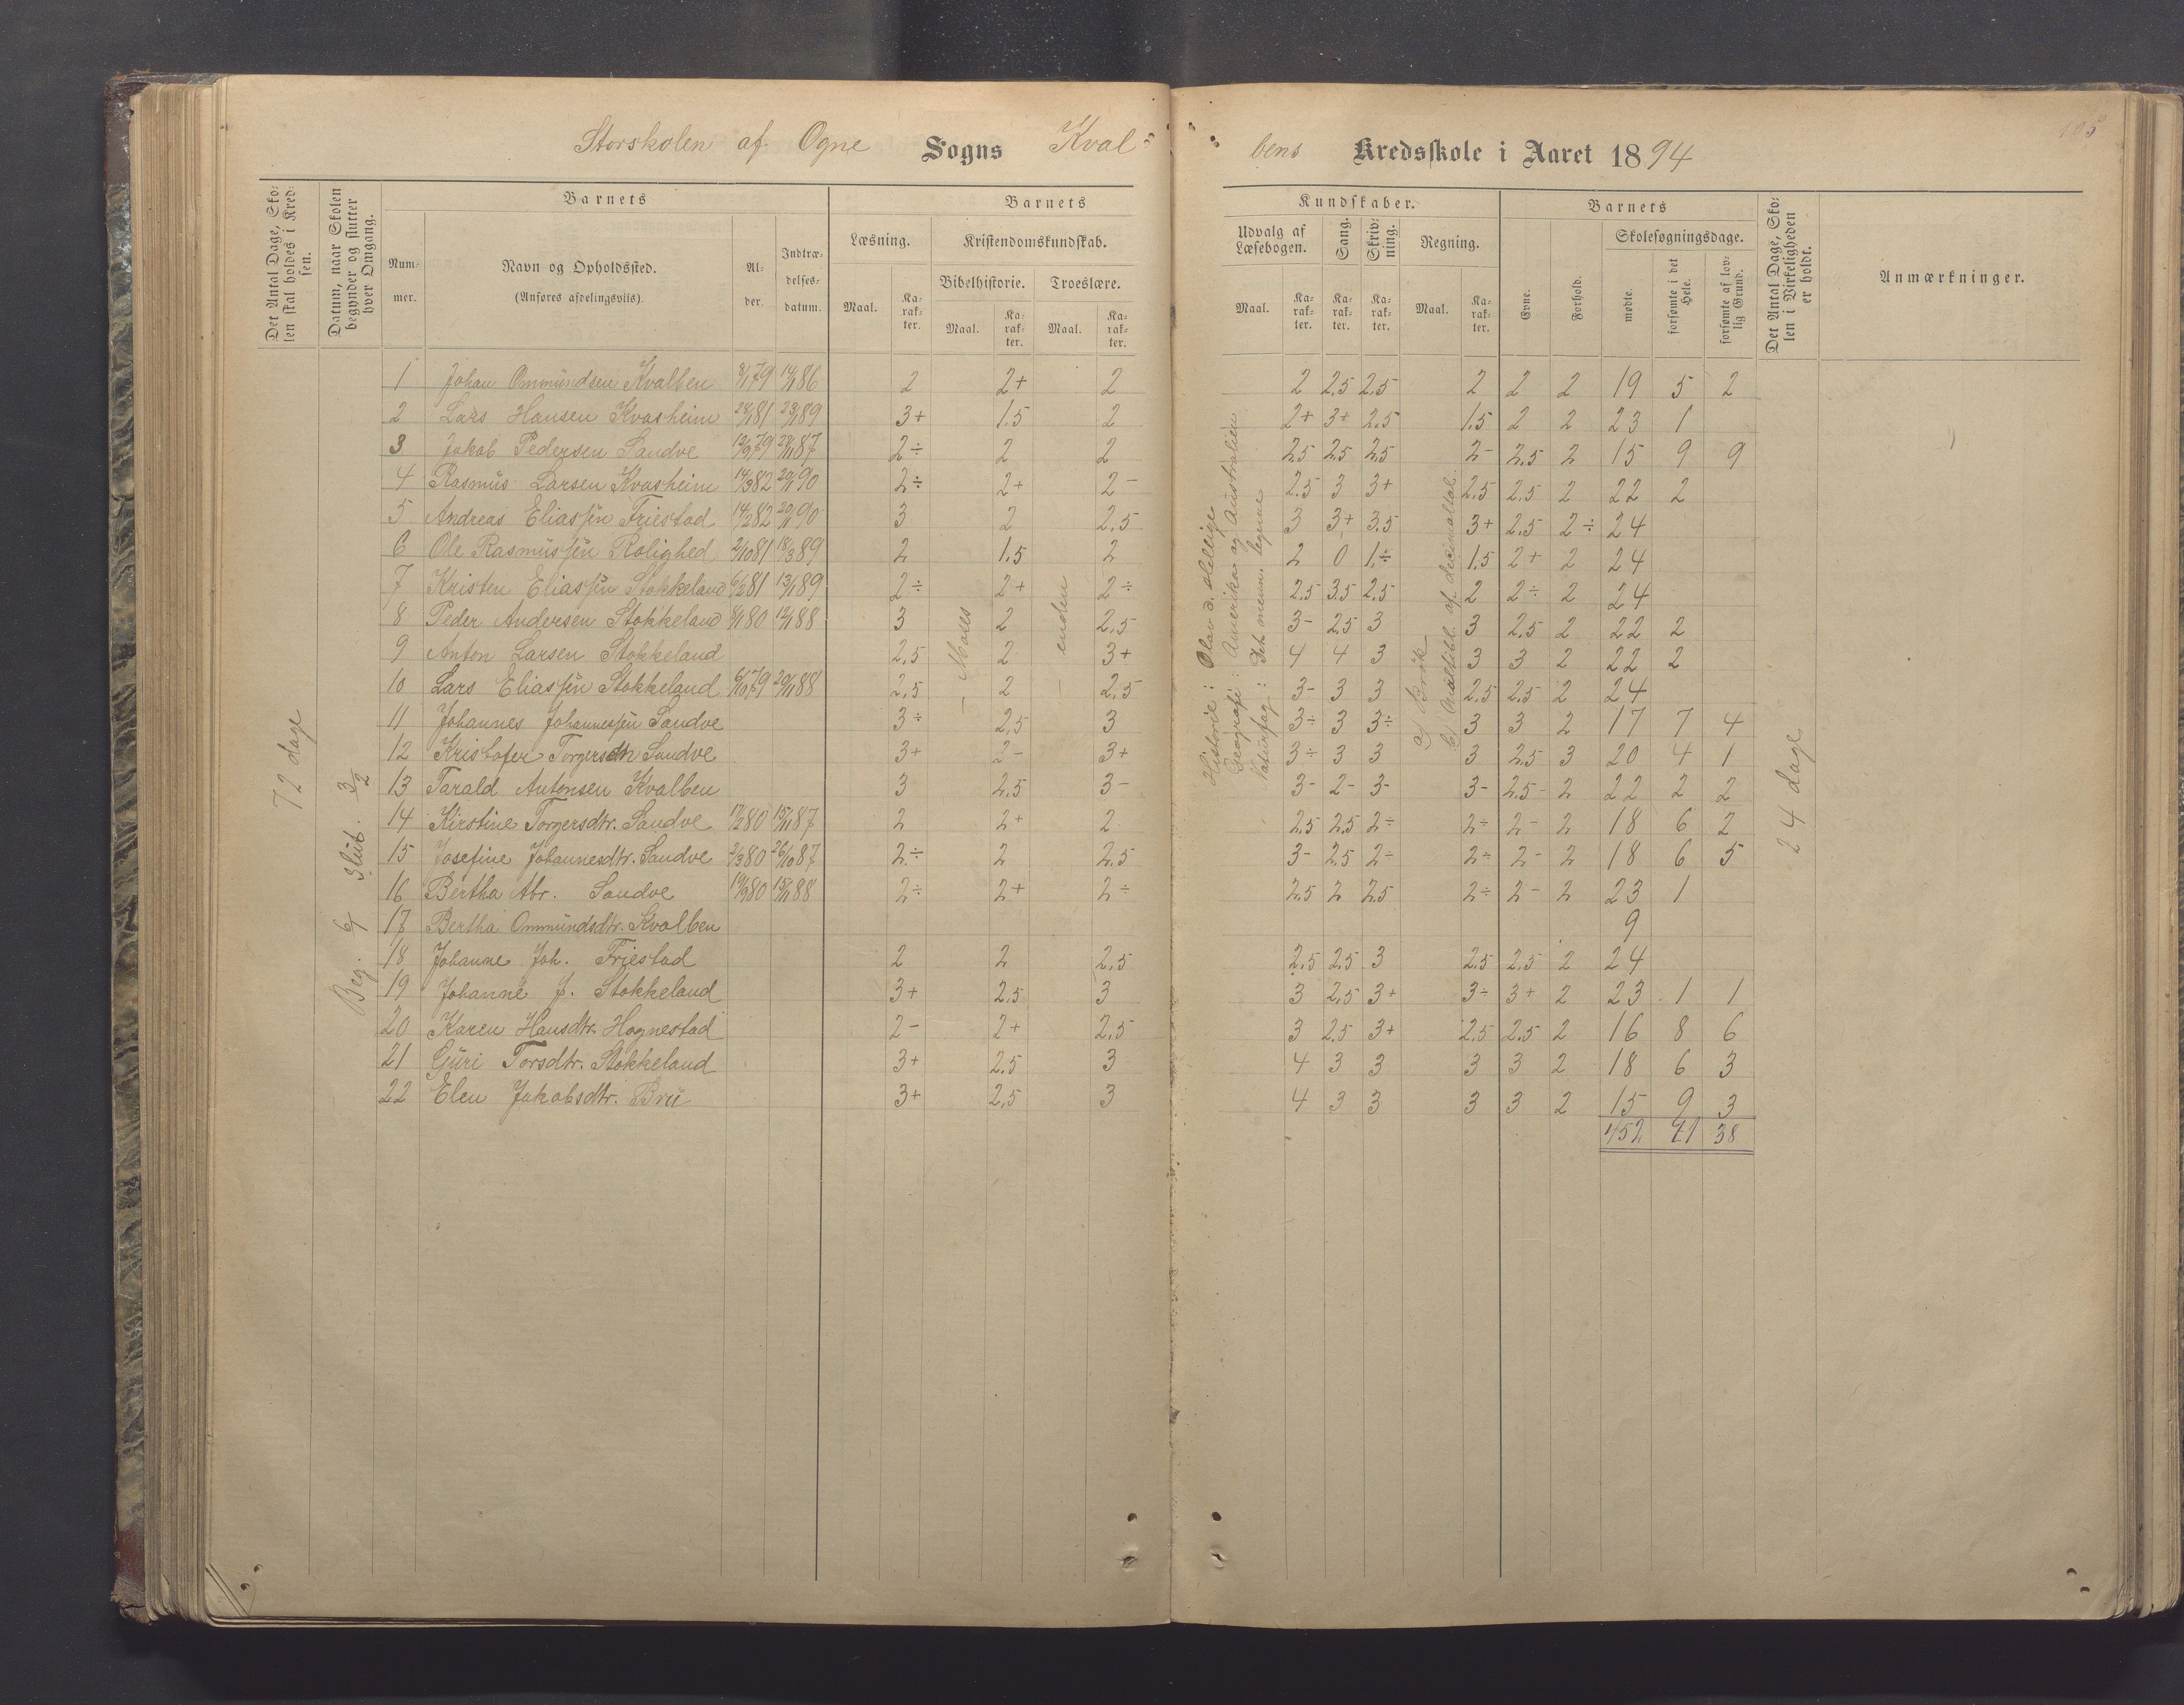 Storskolen af Ogne Sogns Kval-
bens Kredsskole i Aaret 1894
105
Det Antal Dage, Skolen skal holdes i Kredsen.
Datum, naar Skolen begynder og slutter hver Omgang.
Barnets
Nummer.
Navn og Opholdssted.
(Anføres afdelingsviis).
Alder.
Indtrædelsesdatum.
Barnets
Læsning.
Kristendomskundskab.
Bibelhistorie. Troeslære.
Maal. Karakter. Maal. Karakter. Maal. Karakter.
Kundskaber.
Udvalg af Læsebogen. Sang. Skrivning. Regning.
Maal. Karakter. Karakter. Karakter. Maal. Karakter.
Barnets
Evne. Forhold.
Skolesøgningsdage.
mødte. forsømte i det Hele. forsømte af lovlig Grund.
Det Antal Dage, Skolen i Virkeligheden er holdt.
Anmærkninger.
72 dage
Beg. 6/1 Slut. 3/2
Moses
enden
Historie: Olav d. Hellige
Geografi: Amerika og Australien
Naturfag: Det menn. legeme
a) Brøk
b) Multipl. af decimaltal.
24 dage
1 Johan Ommundsen Kvalben 8/1 79 14/1 86 2 2+ 2 2 2,5 2,5 2 2 2 19 5 2
2 Lars Hansen Kvasheim 28/1 81 23/1 89 3+ 1.5 2 2+ 3+ 2,5 1.5 2 2 23 1
3 Jakob Pedersen Sandve 12/9 79 28/1 87 2÷ 2 2 2,5 2,5 2,5 2- 2,5 2 15 9 9
4 Rasmus Larsen Kvasheim 14/3 82 20/1 90 2÷ 2+ 2- 2.5 3 3+ 2,5 2.5 2 22 2
5 Andreas Eliassen Friestad 14/2 82 20/1 90 3 2 2,5 3 3+ 3.5 3+ 2,5 2÷ 24
6 Ole Rasmussen Rolighed 2/10 81 18/3 89 2 1.5 2 2 0 1÷ 1.5 2+ 2 24
7 Kristen Eliassen Stokkeland 6/2 81 13/1 89 2÷ 2+ 2÷ 2.5 3.5 2.5 2 2÷ 2 24
8 Peder Andersen Stokkeland 4/1 80 12/1 88 3 2 2,5 3- 2,5 3 3 2,5 2 22 2
9 Anton Larsen Stokkeland 2,5 2 3+ 4 4 3 3 3 2 22 2
10 Lars Eliassen Stokkeland 6/10 79 20/1 88 2,5 2 2,5 3- 3 3 2,5 2,5 2 24
11 Johannes Johannessen Sandve 3÷ 2,5 3 3÷ 3 3÷ 3 3 2 17 7 4
12 Kristofer Torgersen Sandve 3+ 2- 3+ 3÷ 3 3 3 2.5 3 20 4 1
13 Tarald Antonsen Kvalben 3 2,5 3- 3- 2- 3- 3- 2,5- 2 22 2 2
14 Kirstine Torgersdtr. Sandve 17/2 80 15/1 87 2 2+ 2 2.5 2,5 2÷ 2÷ 2- 2 18 6 2
15 Josefine Johannesdtr. Sandve 2/3 80 26/10 87 2÷ 2 2.5 3- 2.5 2÷ 2÷ 2- 2 18 6 5
16 Bertha Abr. Sandve 14/9 80 15/1 88 2÷ 2+ 2÷ 2.5 2 2.5 2÷ 2- 2 23 1
17 Bertha Ommundsdtr. Kvalben 9
18 Johanne Joh. Friestad 2 2 2,5 2,5 2,5 3 2.5 2,5 2 24
19 Johanne J. Stokkeland 3+ 2.5 3 3 2,5 3+ 3÷ 3+ 2 23 1 1
20 Karen Hansdtr. Hognestad 2- 2+ 2,5 3 2.5 3+ 2.5 2.5 2 16 8 6
21 Guri Torsdtr. Stokkeland 3+ 2.5 3 4 3 3 3 3 2 18 6 3
22 Elen Jakobsdtr. Bru 3+ 2,5 3 4 3 3 3 3 2 15 9 3
452 71 38